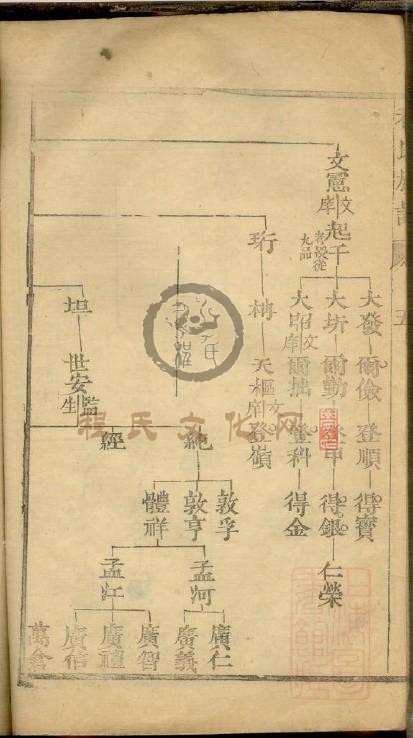 文憲 文庠
起千 考授從九品
大發
爾儉
登順
得寶
大圻
爾勤
得銀
仁榮
大昭 文庠
爾拙
登科
得金
珩
天樞 文庠
登嶺
純
敦孚
敦亨
體祥
孟河
廣仁
廣義
孟江
廣智
廣禮
廣信
萬倉
經
坦
世安 監生
程氏文化网
五